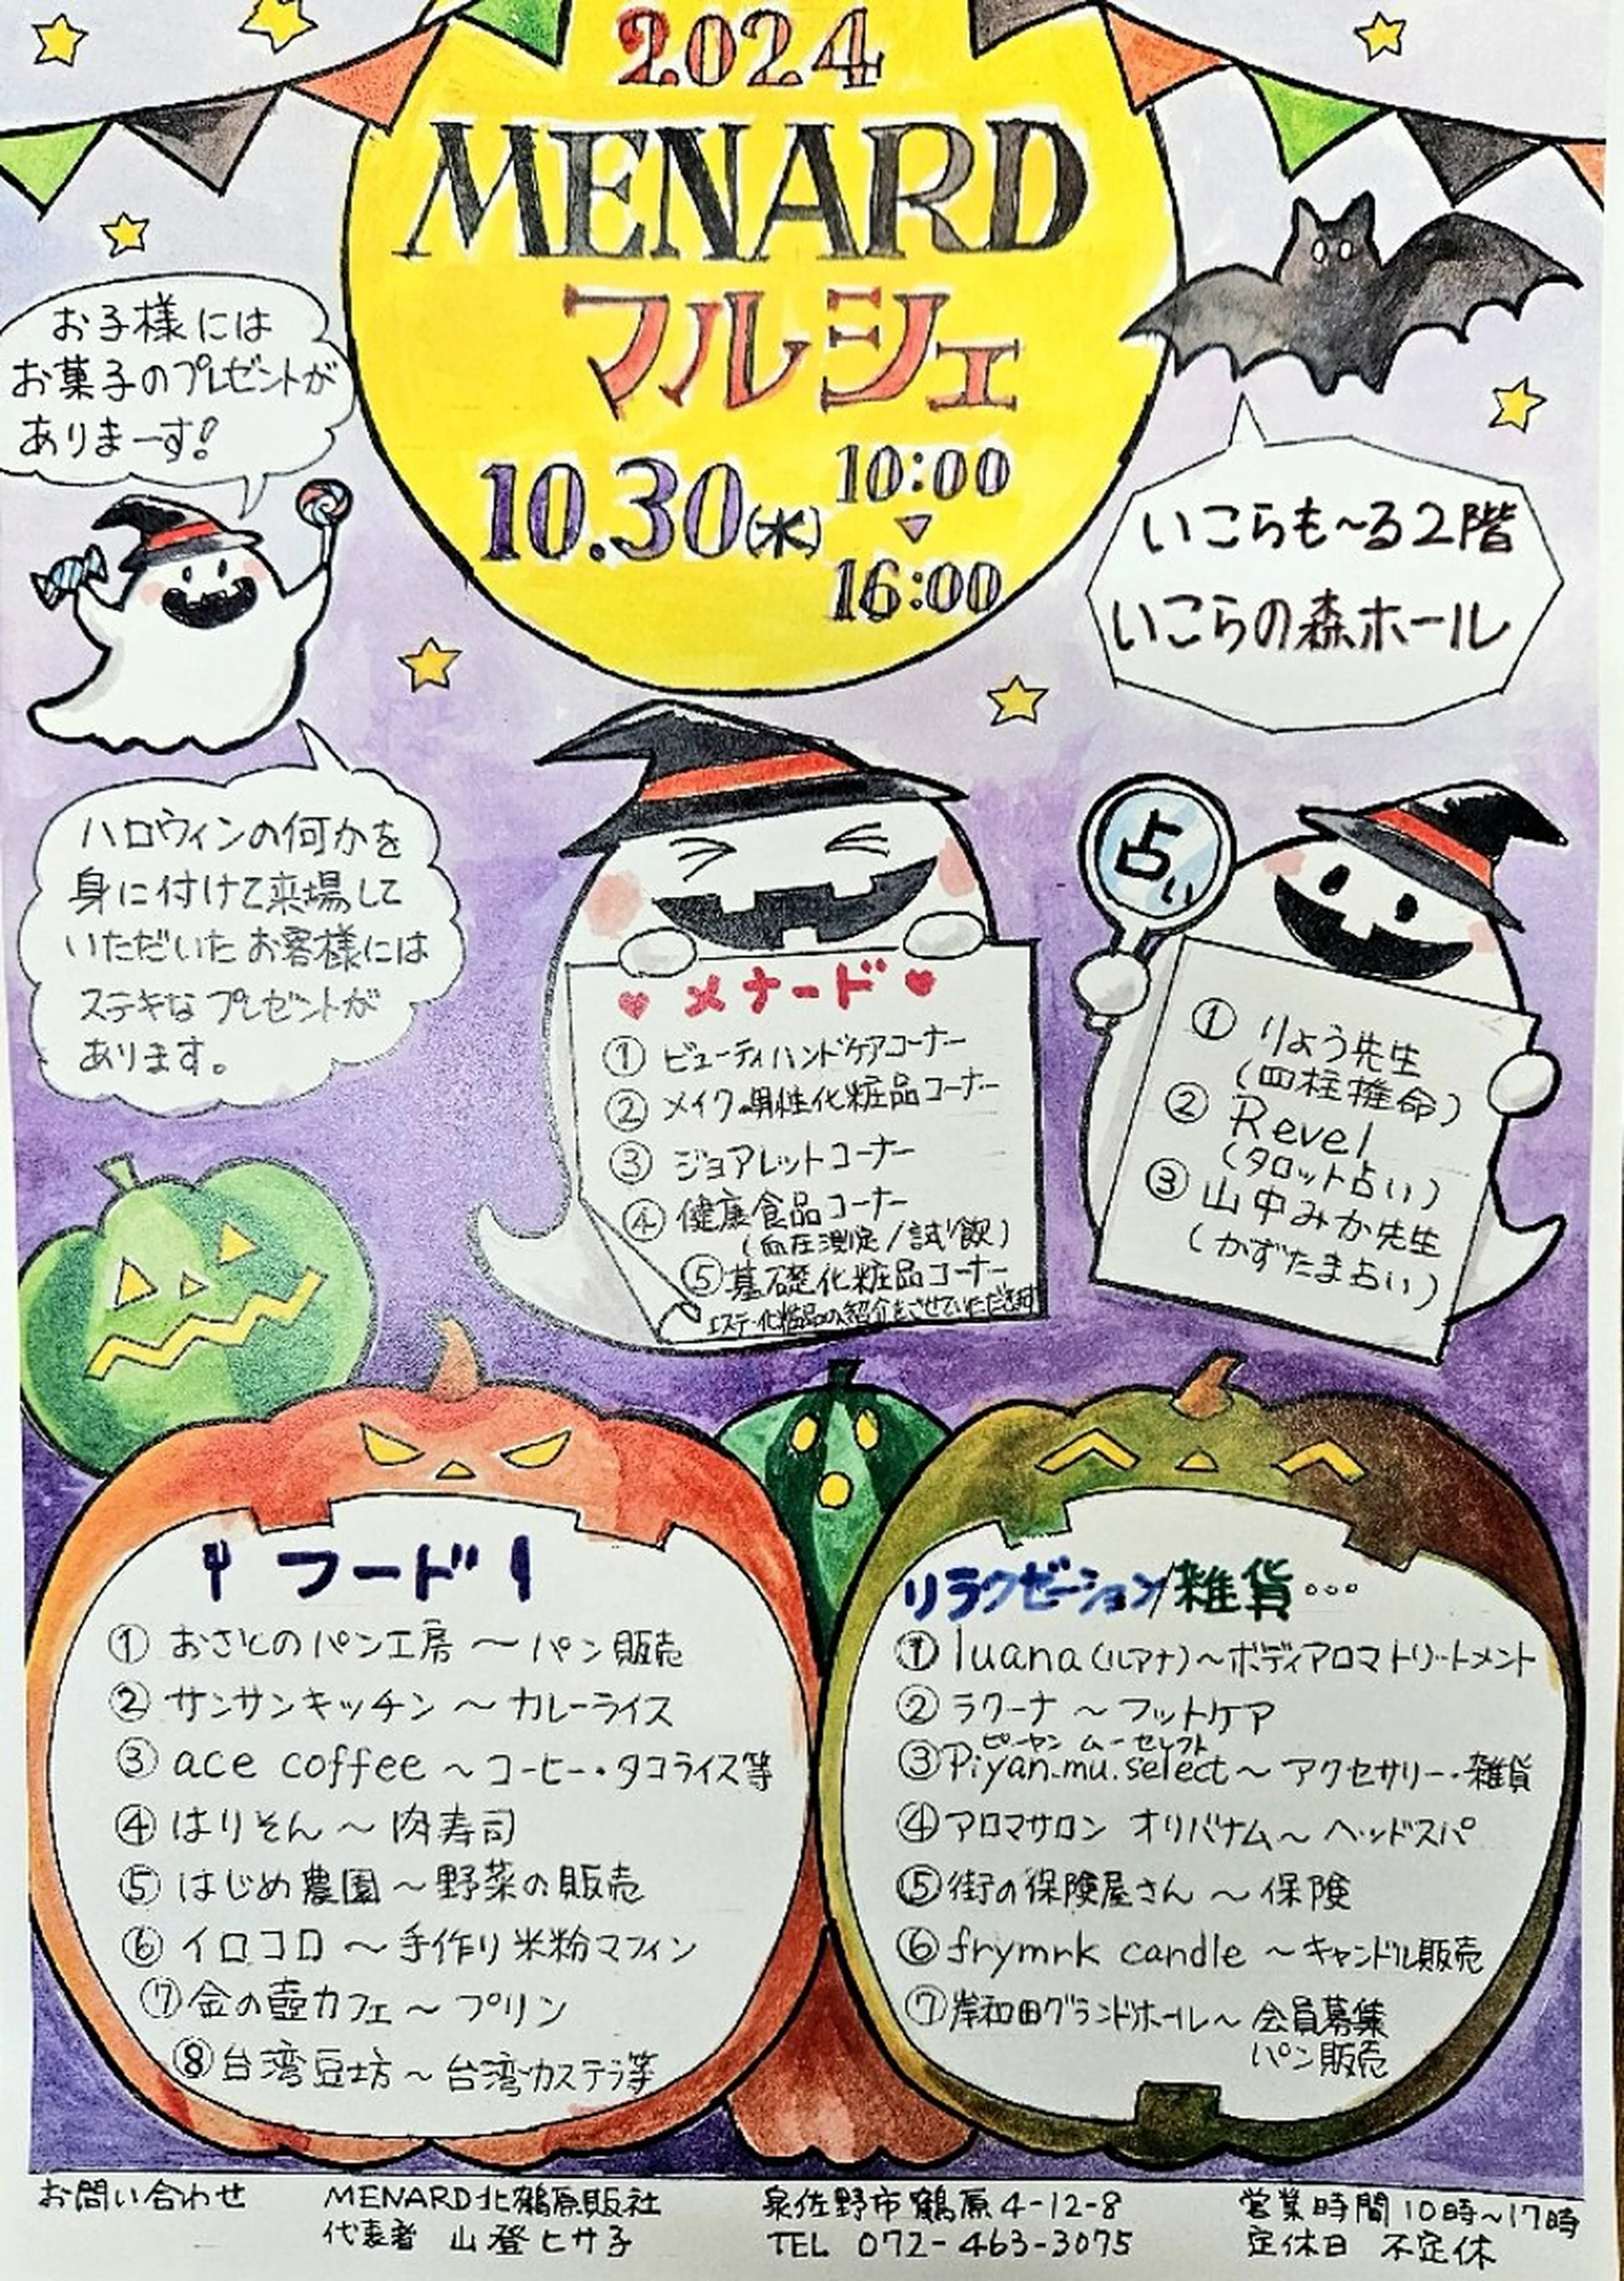 2024
MENARD
マルシェ
10.30(水)
10:00
16:00
お子様には
お菓子のプレゼントが
ありまーす!
いこらも~る2階
いこらの森ホール
ハロウィンの何かを
身に付けて来場して
いただいたお客様には
ステキなプレゼントが
あります。
♥メナード♥
① ビューティハンドケアコーナー
② メイク・男性化粧品コーナー
③ ジョアレットコーナー
④ 健康食品コーナー
(血圧測定/試飲)
⑤ 基礎化粧品コーナー
エステ・化粧品の紹介をさせていただきます
占い
① りょう先生
(四柱推命)
② Revel
(タロット占い)
③ 山中みか先生
(かずたま占い)
フード
① おさとのパン工房 ~ パン販売
② サンサンキッチン ~ カレーライス
③ ace coffee ~ コーヒー・タコライス等
④ はりそん ~ 肉寿司
⑤ はじめ農園 ~ 野菜の販売
⑥ イロコロ ~ 手作り米粉マフィン
⑦ 金の壺カフェ ~ プリン
⑧ 台湾豆坊 ~ 台湾カステラ等
リラクゼーション/雑貨...
① luana(ルアナ)~ボディアロマトリートメント
② ラクーナ ~ フットケア
ピーヤン ムー セレクト
③ Piyan.mu.select ~ アクセサリー・雑貨
④ アロマサロン オリバナム ~ ヘッドスパ
⑤ 街の保険屋さん ~ 保険
⑥ frymrk candle ~ キャンドル販売
⑦ 岸和田グランドホール ~ 会員募集
パン販売
お問い合わせ
MENARD北鶴原販社
代表者 山登ヒサ子
泉佐野市鶴原4-12-8
TEL 072-463-3075
営業時間10時~17時
定休日 不定休